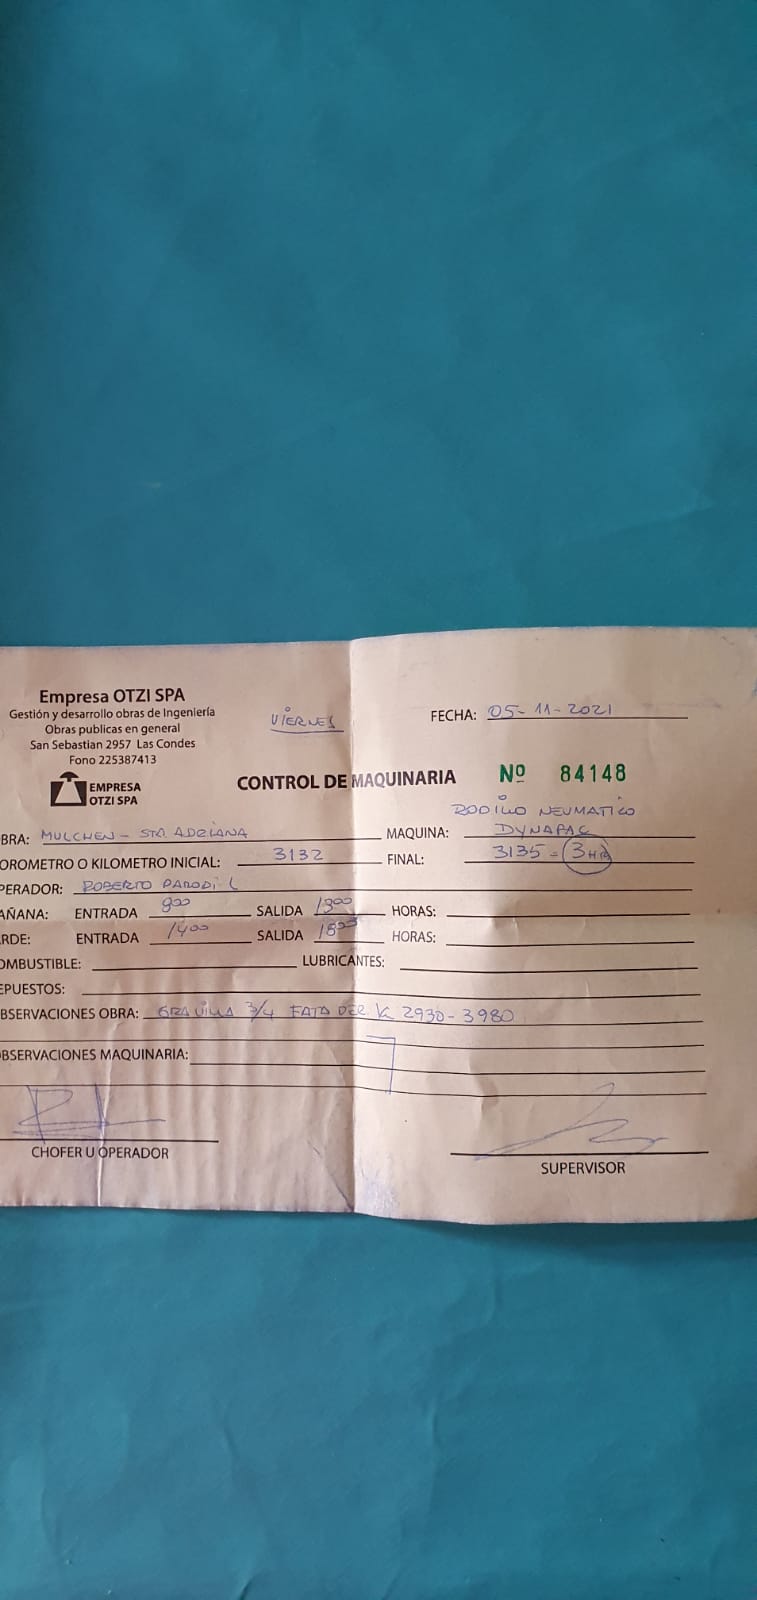 Empresa OTZI SPA
Gestión y desarrollo obras de Ingeniería
Obras publicas en general
San Sebastian 2957 Las Condes
Fono 225387413
EMPRESA
OTZI SPA
VIERNES
FECHA: 05-11-2021
CONTROL DE MAQUINARIA Nº 84148
RODILLO NEUMATICO
BRA: MULCHEN - STA. ADRIANA MAQUINA: DYNAPAC
OROMETRO O KILOMETRO INICIAL: 3132 FINAL: 3135 = 3 HR
PERADOR: ROBERTO PARODI L
AÑANA: ENTRADA 800 SALIDA 1300 HORAS:
RDE: ENTRADA 1400 SALIDA 1800 HORAS:
OMBUSTIBLE: LUBRICANTES:
EPUESTOS:
BSERVACIONES OBRA: GRAVILLA 3/4 DER. K 2930-3980
BSERVACIONES MAQUINARIA:
CHOFER U OPERADOR
SUPERVISOR